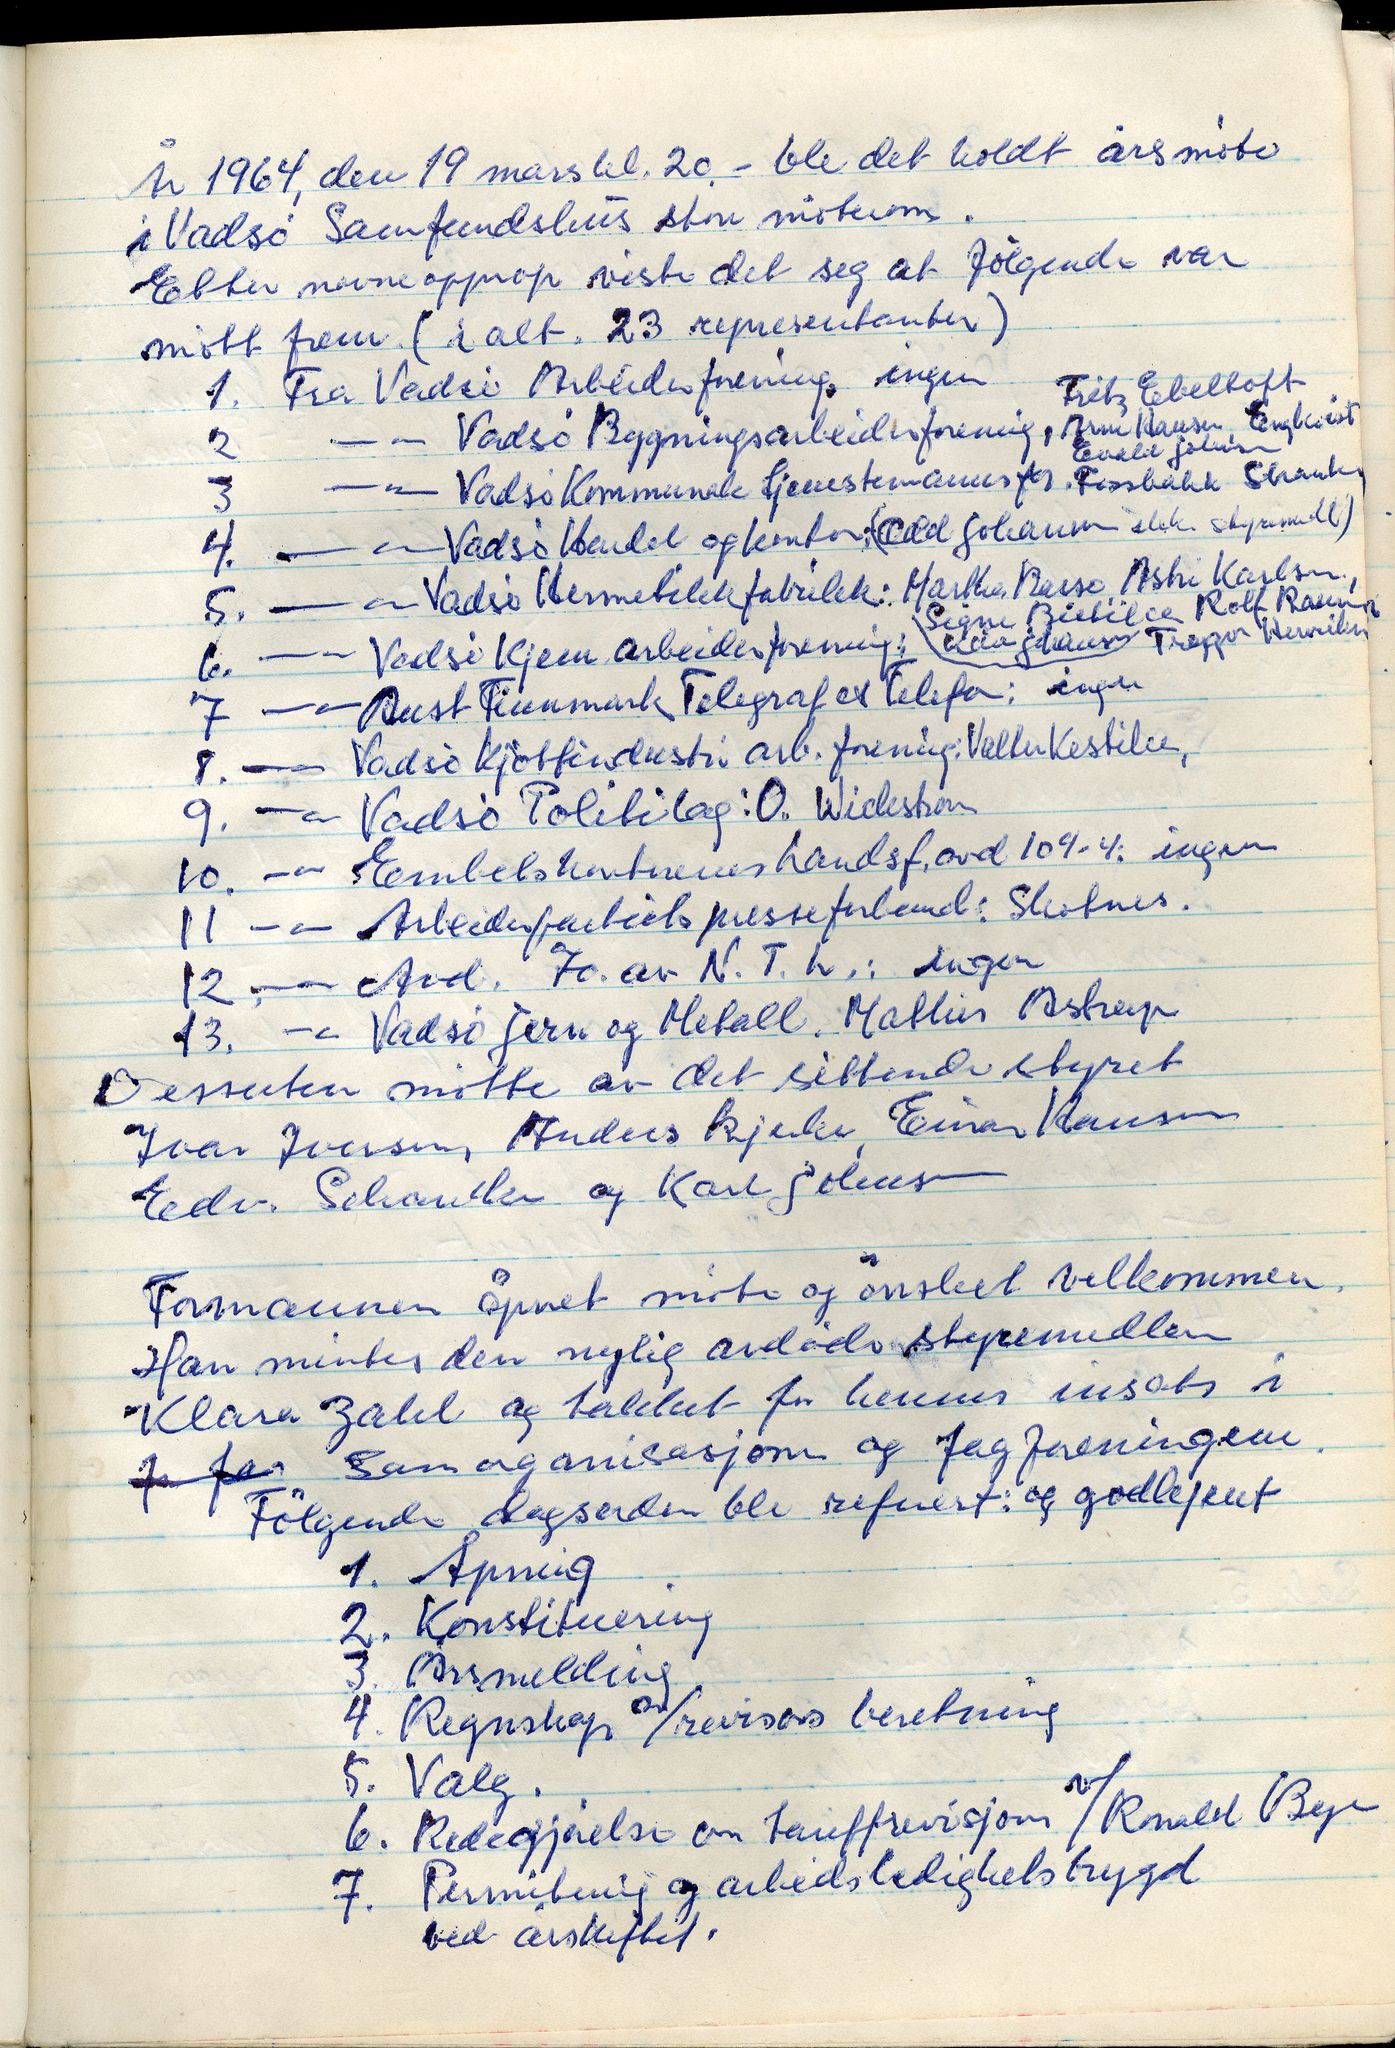 År 1964, den 19 mars kl. 20.- ble det holdt årsmöte
i Vadsö Samfundshus store möterom.
Etter navneopprop viste det seg at fölgende var
mött frem. (i alt. 23 representanter)
1. Fra Vadsö Arbeiderforening, ingen
2 -"- Vadsö Bygningsarbeiderforening, Fritz Ebeltoft Arne Hansen Engkvist Evald Johnsen
3 -"- Vadsö Kommunale tjenestemanns for. Fossbakk
4. -"- Vadsö Handel og kontor: (Odd Johansen styremedl)
5. -"- Vadsö Hermetikkfabrikk: Martha Basso, Astri Karlsen,
6. -"- Vadsö Kjem. arbeiderforening: Signe Rolf Trygve Henriksen
7 -"- Aust Finnmark Telegraf og Telefon: ingen
8. -"- Vadsö Kjöttindustri arb. forening: Valter Kestilæ,
9. -"- Vadsö Politilag: O. Wickstrøm
10. -"- Embetskontorenes Landsf. avd 109-4: ingen
11 -"- Arbeiderpartiets presseforbund: Skotnes.
12. -"- Avd. 70. av N. T. L.: ingen
13. -"- Vadsö Jern og Metall. Mathis Astrup
Dessuten mötte av det sittende styret
Ivar Iversen, Anders Einar Hansen
Edv. Schanke og Karl Johnsen
Formannen åpnet möte og önsket velkommen.
Han mintes den nylig avdöde styremedlem
Klara Zahl og takket for hennes insats i
Samorganisasjonen og Fagforeningene.
Fölgende dagsorden ble referert: og godkjent
1. Åpning
2. Konstituering
3. Årsmelding
4. Regnskap m/revisors beretning
5. Valg.
6. Redegjörelse om tariffrevisjonen v/Ronald Bye
7. Permitering og arbeidsledighetstrygd
ved årskiftet.